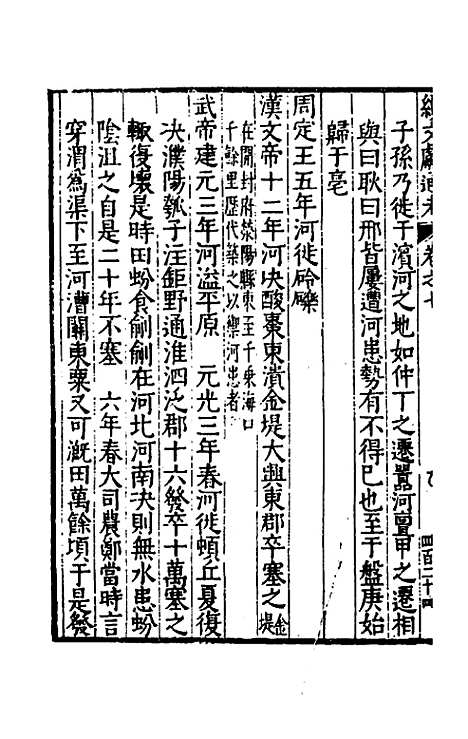 續文獻通考 卷之七
子孫乃徙于濱河之地如仲丁之遷囂河亶甲之遷相
與曰耿曰邢皆屢遭河患勢有不得已也至于盤庚始
歸于亳
周定王五年河徙砱礫
漢文帝十二年河決酸棗東潰金堤大興東郡卒塞之金堤
在開封府滎陽縣東至千乘海口
千餘里歷代築之以禦河患者
武帝建元三年河溢平原 元光三年春河徙頓丘夏復
決濮陽瓠子注鉅野通淮泗泛郡十六發卒十萬塞之
輒復壞是時田蚡食鄃鄃在河北河南決則無水患蚡
陰沮之自是二十年不塞 六年春大司農鄭當時言
穿渭為渠下至河漕關東粟又可漑田萬餘頃于是發